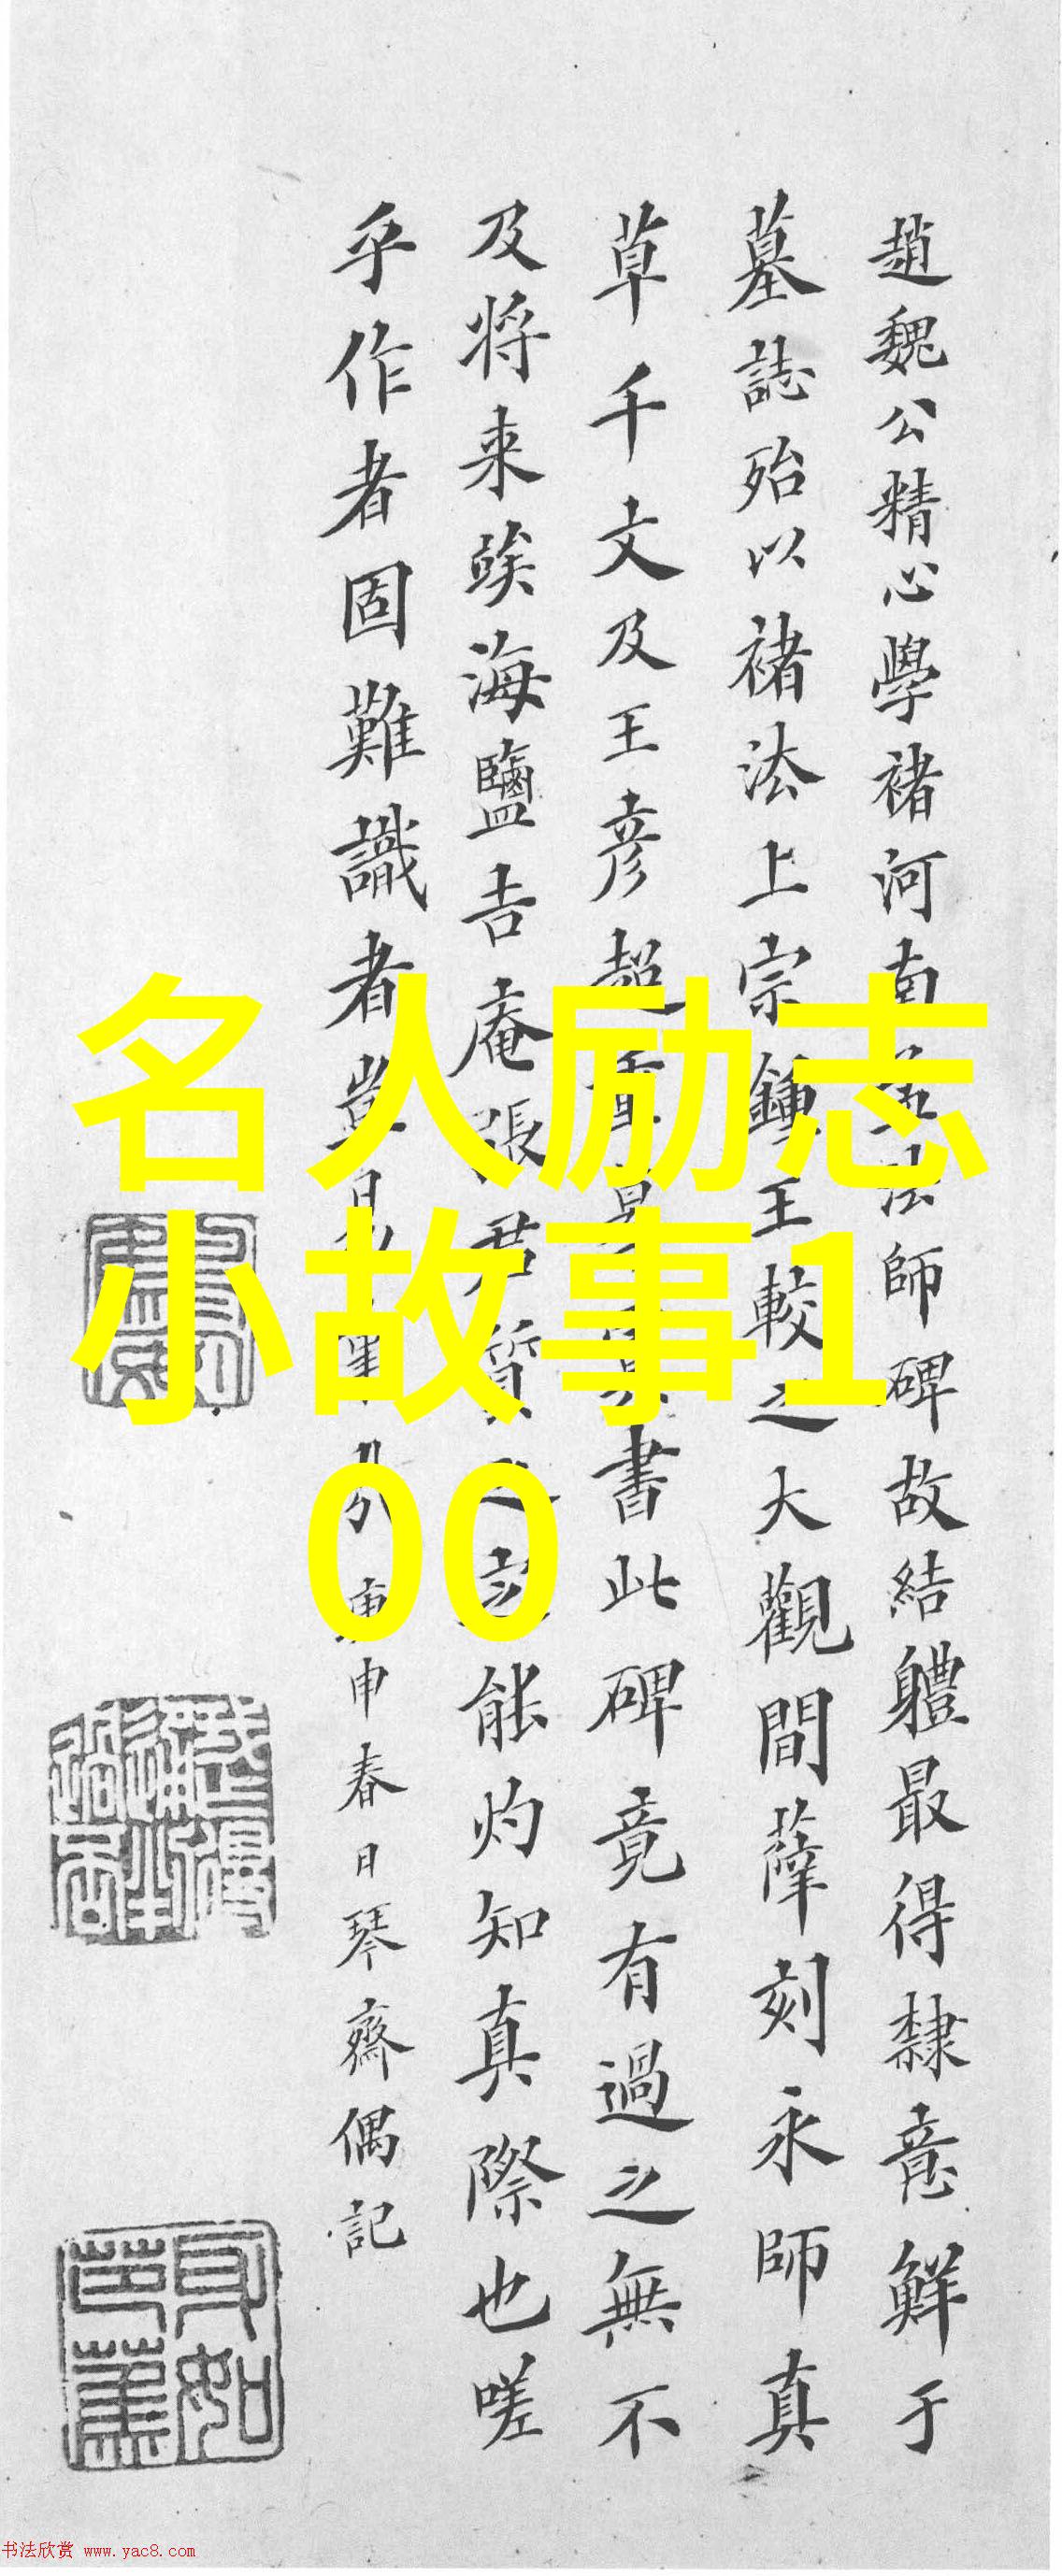 趙魏公精心學褚河南
師碑故結軆最得隸意鮮于
墓誌殆以褚法上宗鍾王較之大觀間薛刻永師真
草千文及王彦超
書此碑竟有過之無不
及将来俟海鹽吉庵張君質之
能灼知真際也嗟
乎作者固難識者豈
申春日琴齋偶記
名人励志
小故事1
00
书法欣赏 www.yac8.com